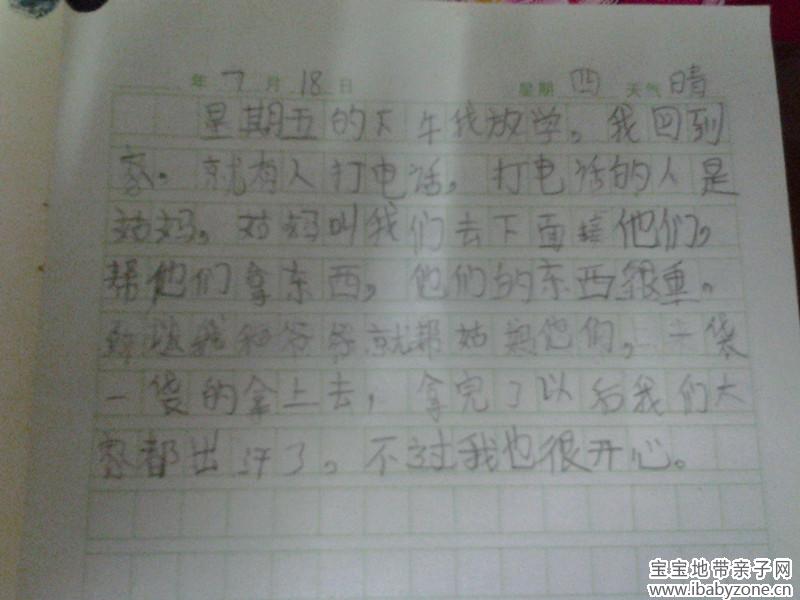 年7月18日 星期四 天气晴
星期五的下午我放学。我回到
家。就有人打电话。打电话的人是
姑妈。姑妈叫我们去下面接他们,
帮他们拿东西。他们的东西很重。
我和爷爷就帮姑妈他们,一袋
一袋的拿上去,拿完了以后我们大
家都出汗了。不过我也很开心。
宝宝地带亲子网
www.ibabyzone.cn